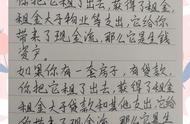 你把它租了出去,获得了租金,
租金大于物业等支出,它给你
带来了现金流,那么它是生钱
资产。
如果你有一套房子,有贷款,
你把它租了出去,获得了租金
租金大于贷款和其他支出,它给
你带来了现金流,那么它是